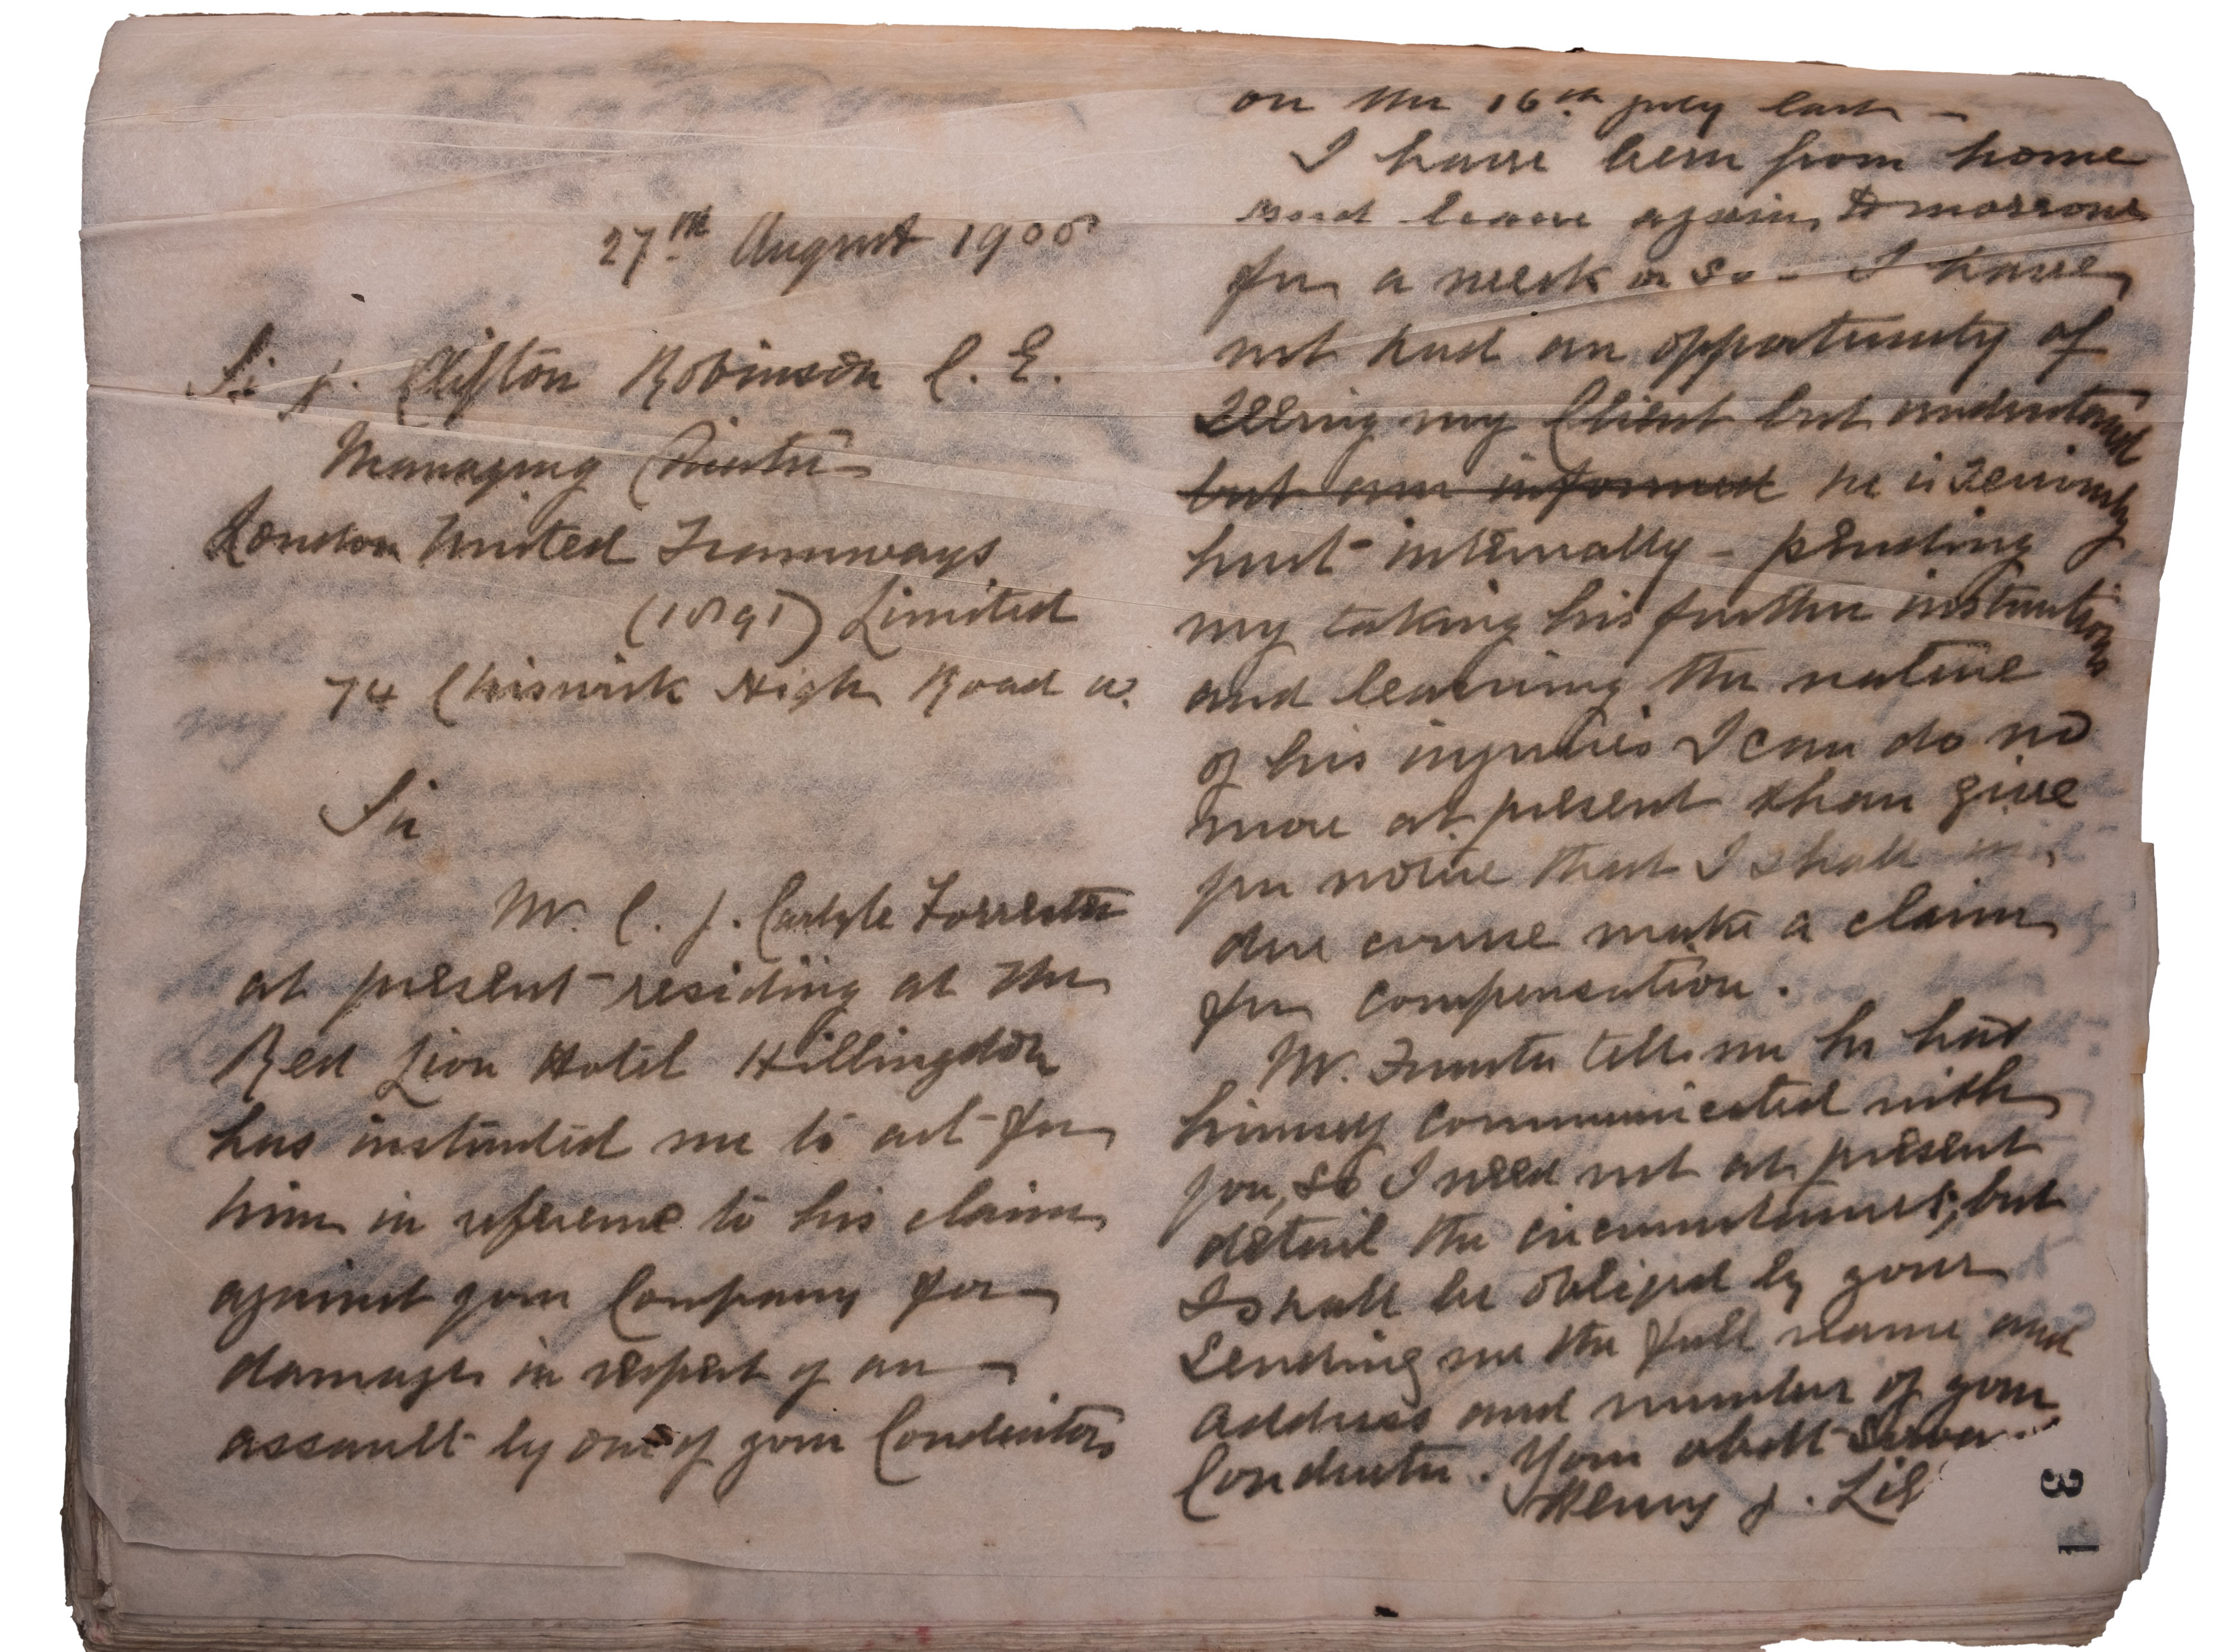 27th August 1908
Sir J. Clifton Robinson C. E.
Managing Director
London United Tramways
(1891) Limited
74 Chiswick High Road W.
Sir
Mr. C. J. Carlyle Forrester
at present residing at the
Red Lion Hotel Hillingdon
has instructed me to act for
him in reference to his claim
against your Company for
damages in respect of an
assault by one of your Conductors
on the 16th July last -
I have been from home
and leave again tomorrow
for a week or so - I have
not had an opportunity of
seeing my Client but understand
but am informed he is seriously
hurt internally - pending
my taking his further instructions
and learning the nature
of his injuries I can do no
more at present than give
you notice that I shall in
due course make a claim
for compensation.
Mr. Forrester tells me he had
himself communicated with
you, so I need not at present
detail the circumstances, but
I shall be obliged by your
sending me the full name and
address and number of your
Conductor. Your obdt
Henry J. Lil
31